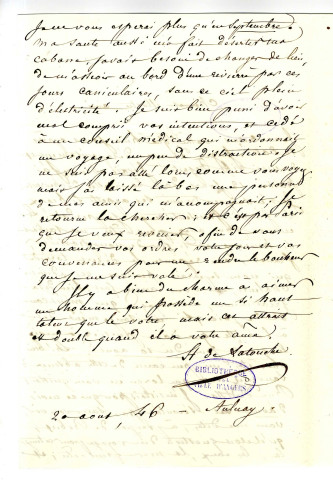 Je ne vous espérai plus qu'en Septembre.
Ma santé aussi me fait déserter ma
cabane, j'avais besoin de changer de lieu,
de m'asseoir au bord d'une rivière par ces
jours caniculaires, sous ce ciel plein
d'électricité. Je suis bien puni d'avoir
mal compris vos intentions, et cédé
à un conseil médical qui m'ordonnait
un voyage, un peu de distraction. Je
ne suis pas allé loin, comme vous voyez
mais j'ai laissé là bas une personne
de mes amies qui m'accompagnait; je
retourne la chercher; et c'est par Paris
que je veux revenir, afin de vous
demander vos ordres, votre jour et vos
convenances pour me rendre le bonheur
que je me suis volé.
Il y a bien du charme à aimer
un homme qui possède un si haut
talent que le votre mais cet attrait
est double quand il a votre âme.
H de Latouche
BIBLIOTHÈQUE
VILLE D'ANGERS
20 aout, 46 - Aulnay.